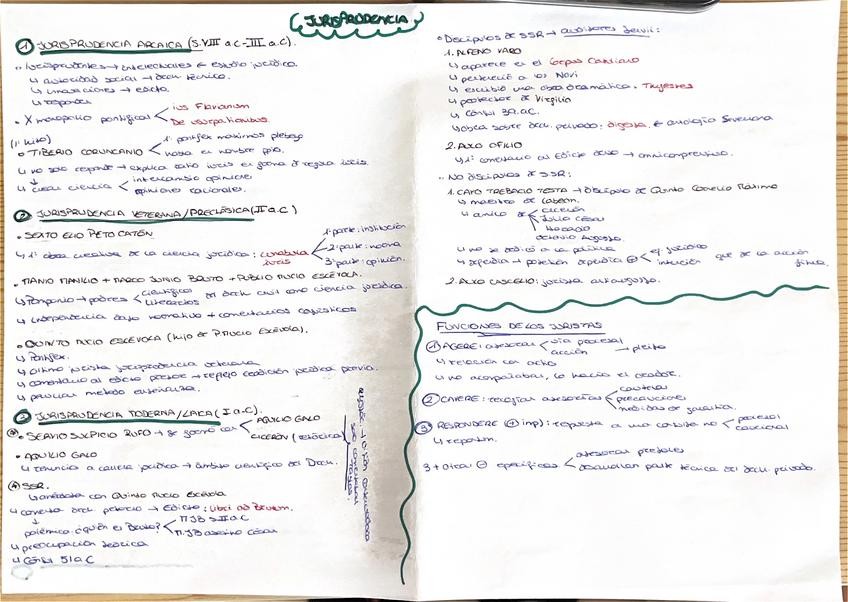 JURISPRUDENCIA
① JURISPRUDENCIA ARCAICA (S.VIII a.C-III a.C).
• Jurisprudentes → intelectuales estudio jurídico.
↳ autoridad social → dech. técnico.
↳ innovaciones → edicto.
↳ responder
• X monopolio pontifical < ius Flavianum
De usurpationibus
(1º laico)
• TIBERIO CORUNCANIO < 1º pontifex maximus plebeyo
↳ no solo responde → explica ratio iuris en forma de regula iuris.
↳ crear ciencia < intercambio opiniones
opiniones racionales.
② JURISPRUDENCIA VETERANA/PRECLÁSICA (II a.C)
• SEXTO ELIO PETO CATÓN
↳ 1ª obra creativa de la ciencia jurídica: cunabula iuris
1ª parte: institución
2ª parte: norma
3ª parte: opinión.
• MANIO MANILIO + MARCO JUNIO BRUTO + PUBLIO MUCIO ESCÉVOLA.
↳ Pomponio → padres < científicos
literarios
de dech civil como ciencia jurídica.
↳ independencia dato normativo + comentarios casuísticos
• QUINTO MUCIO ESCÉVOLA (hijo de P. Mucio Escévola).
↳ Pontifex.
↳ último jurista jurisprudencia veterana
↳ comentario al edicto pretor → reflejo tradición jurídica previa.
③ JURISPRUDENCIA MODERNA/LAICA (I a.C).
• SERVIO SULPICIO RUFO → se formó con < AQUILIO GALO
CICERÓN (retórica)
• AQUILIO GALO
↳ renuncia a carrera jurídica → ámbito científico del Dech.
SSR.
↳ anécdota con Quinto Mucio Escévola
↳ comenta dech. pretorio → Edicto: libri ad Brutum.
polémica ¿quién es Bruto? < MJB S.II a.C
MJB asesino César
↳ preocupación teórica
↳ Cónsul 51 a.C
• Discípulos de SSR → auditores Servii:
1. ALFENO VARO
↳ aparece en el Corpus Catuliano
↳ perteneció a los Novi
↳ escribió una obra dramática: Thyestes
↳ protector de Virgilio
↳ Cónsul 39 a.C.
↳ obra sobre dech. privado: digesta, antología Serviana
2. AULO OFILIO
↳ 1º comentario al Edicto → omnicomprensivo.
• No discípulos de SSR:
1. CAYO TREBACIO TESTA → discípulo de Quinto Cornelio Máximo
↳ maestro de Labeón.
↳ amigo de < Cicerón
Julio César
Horacio
Octavio Augusto.
↳ no se dedicó a la política
2. AULO CASCELIO: jurista
FUNCIONES DE LOS JURISTAS
① AGERE: asesorar < vía procesal
acción → pleito
↳ relación con actio
↳ no acompañaban, lo hacía el orador.
② CAVERE: recogían asesorías < cautelas
precauciones
medidas de garantía.
③ RESPONDERE (+ imp): respuesta a una consulta no < procesal
cautelar
↳ reportim.
3 + otras ⊖ específicas < asesorar pretores
desarrollan parte técnica del dech. privado.